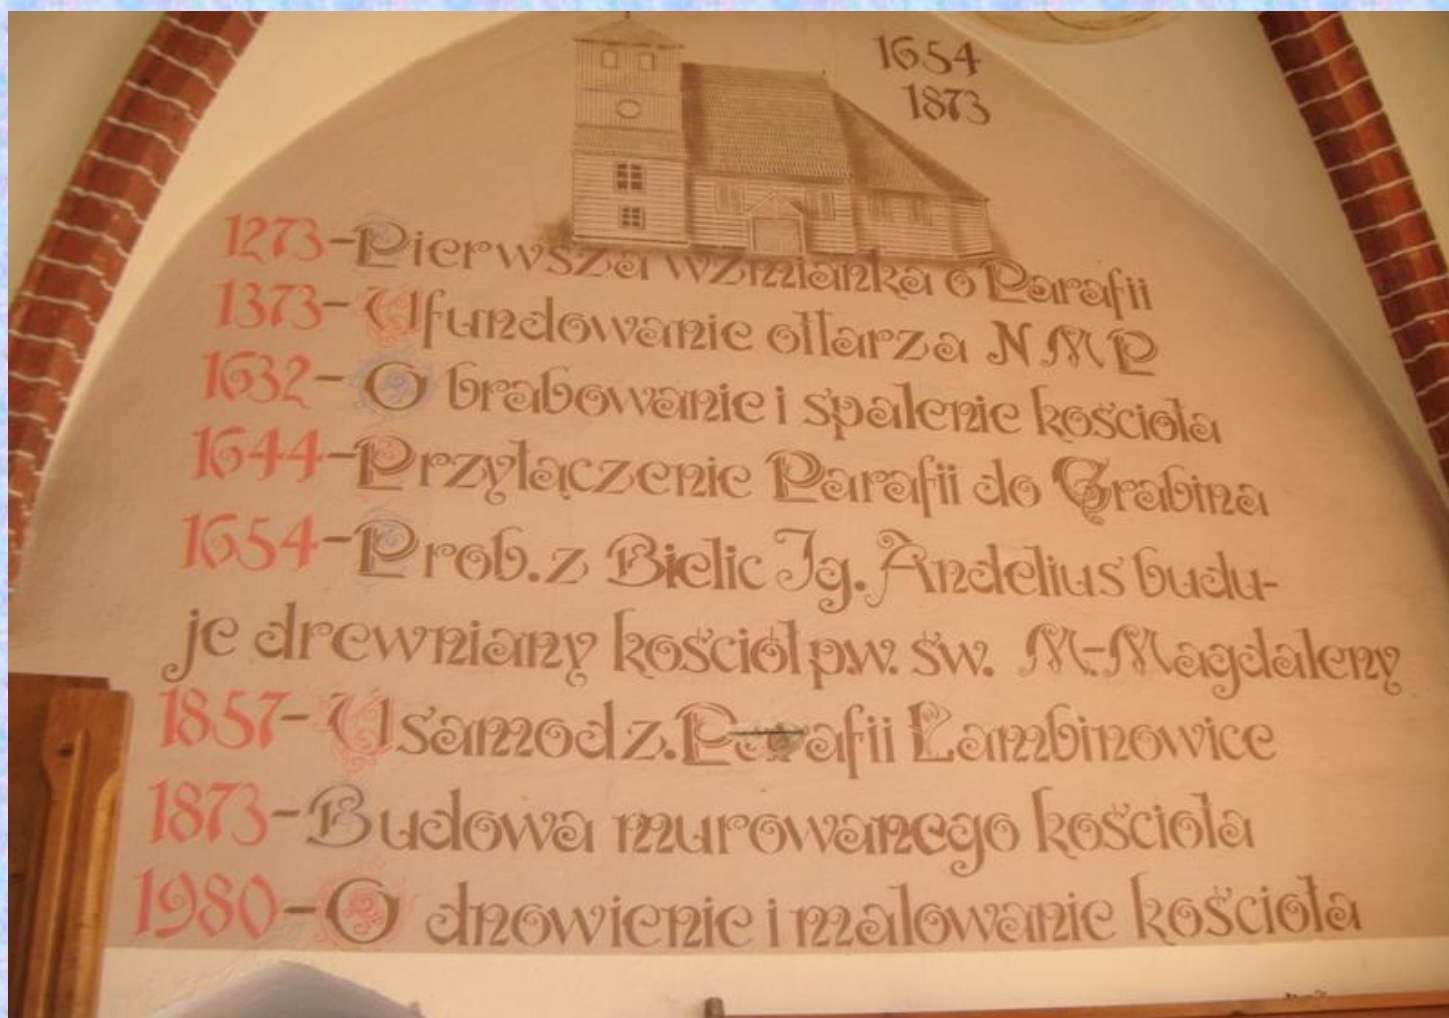 1654
1873
1273-Pierwsza wzmianka o Parafii
1373-Ufundowanie ołtarza N M P
1632-O brabowanie i spalenie kościoła
1644-Przyłączenie Parafii do Grabina
1654-Prob. z Bielic Ig. Andelius budu-
je drewniany kościół p.w. św. M-Magdaleny
1857-Usamodz. Parafii Łambinowice
1873-Budowa murowanego kościoła
1980-O dnowienie i malowanie kościoła